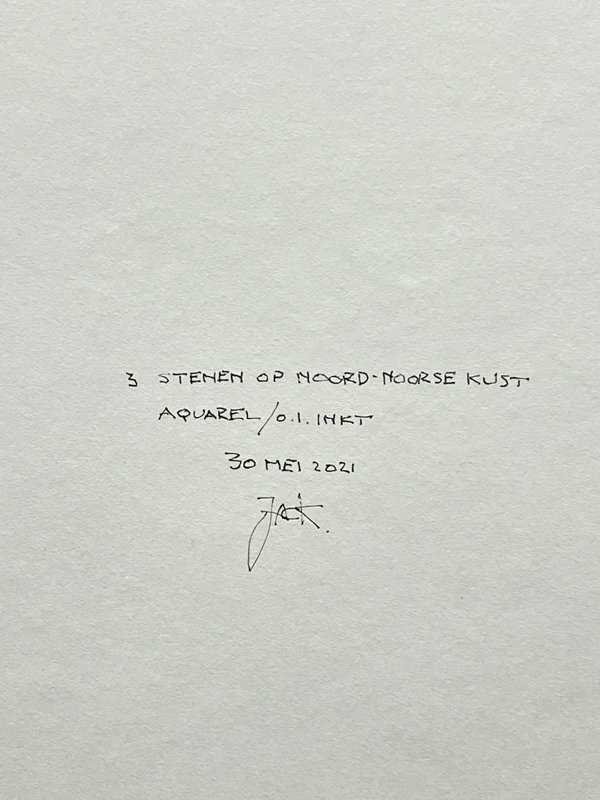 3 STENEN OP NOORD-NOORSE KUST
AQUAREL/O.I. INKT
30 MEI 2021
Jack.